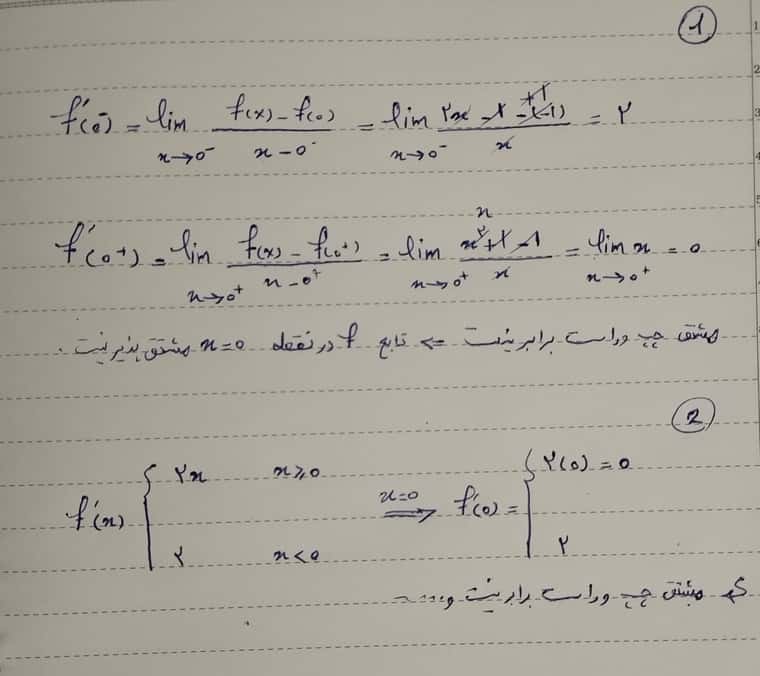 ①
f'(0⁻) = lim x→0⁻ (f(x) - f(0))/(x - 0⁻) = lim x→0⁻ (۲x - 1 - (-1))/x = ۲
f'(0⁺) = lim x→0⁺ (f(x) - f(0⁺))/(x - 0⁺) = lim x→0⁺ (x^۲ + 1 - 1)/x = lim x→0⁺ x = 0
مشتق چپ و راست برابر نیست => تابع f در نقطه x=0 مشتق پذیر نیست.
②
f'(x) { ۲x x⩾0 x=0 ⟹ f'(0) = { ۲(0) = 0
۲ x<0 ۲
مشتق چپ و راست برابر نیست و....